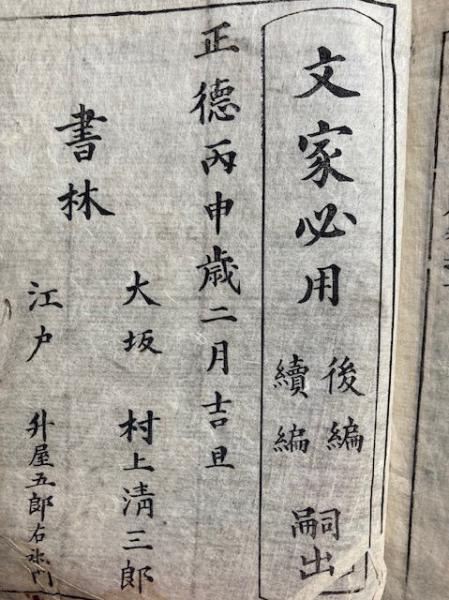 文家必用
後編
續編
嗣出
正德丙申歳二月吉旦
書林
大坂 村上清三郎
江戸 升屋五郎右衛門